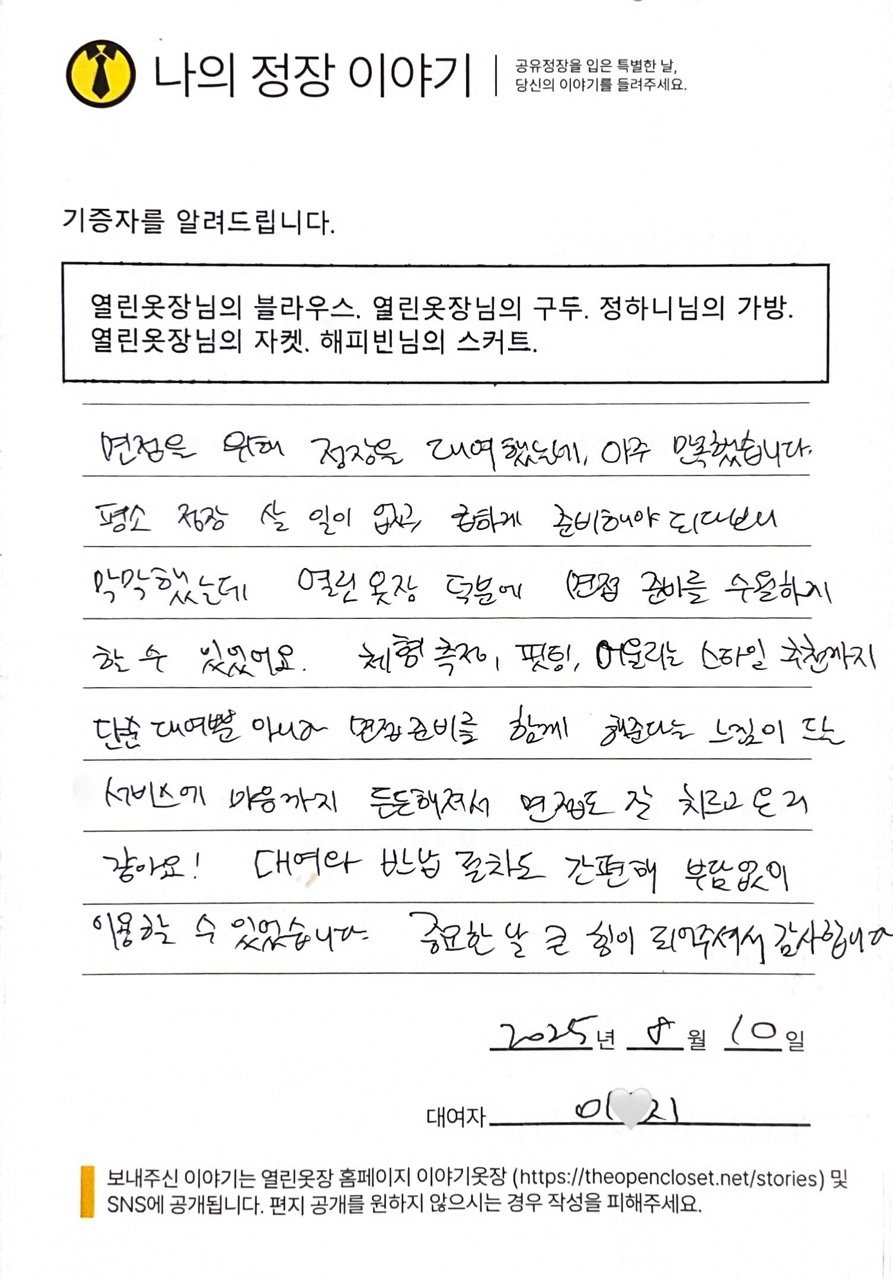 나의 정장 이야기
공유정장을 입은 특별한 날,
당신의 이야기를 들려주세요.
기증자를 알려드립니다.
열린옷장님의 블라우스. 열린옷장님의 구두. 정하니님의 가방.
열린옷장님의 자켓. 해피빈님의 스커트.
면접을 위해 정장을 대여했는데, 아주 만족했습니다.
평소 정장 살 일이 없고, 급하게 준비해야 되다보니
막막했는데 열린 옷장 덕분에 면접 준비를 수월하게
할 수 있었어요. 체형 측정, 핏팅, 어울리는 스타일 추천까지
단순 대여뿐 아니라 면접 준비를 함께 해준다는 느낌이 드는
서비스에 마음까지 든든해져서 면접도 잘 치르고 온 거
같아요! 대여와 반납 절차도 간편해 부담없이
이용할 수 있었습니다. 중요한 날 큰 힘이 되어주셔서 감사합니다
2025년 8월 10일
대여자 이 지
보내주신 이야기는 열린옷장 홈페이지 이야기옷장 (https://theopencloset.net/stories) 및
SNS에 공개됩니다. 편지 공개를 원하지 않으시는 경우 작성을 피해주세요.